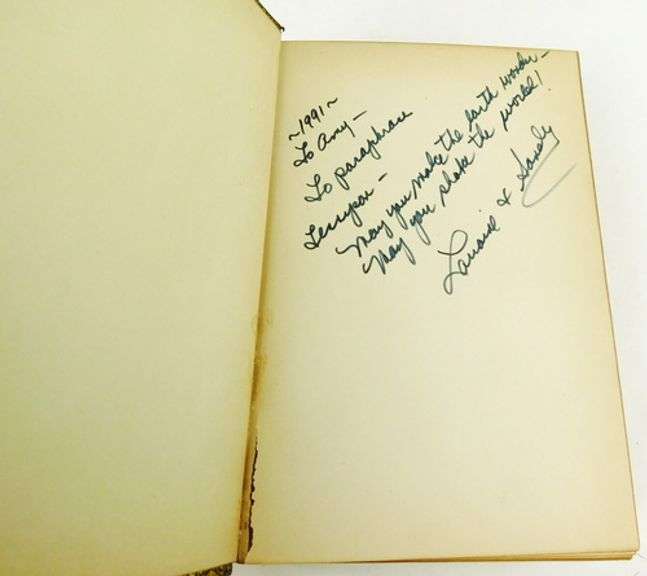 ~1991~
To Amy—
To paraphrase
Tennyson—
May you make the earth wonder—
May you shake the world!
Lorraine & Sandy